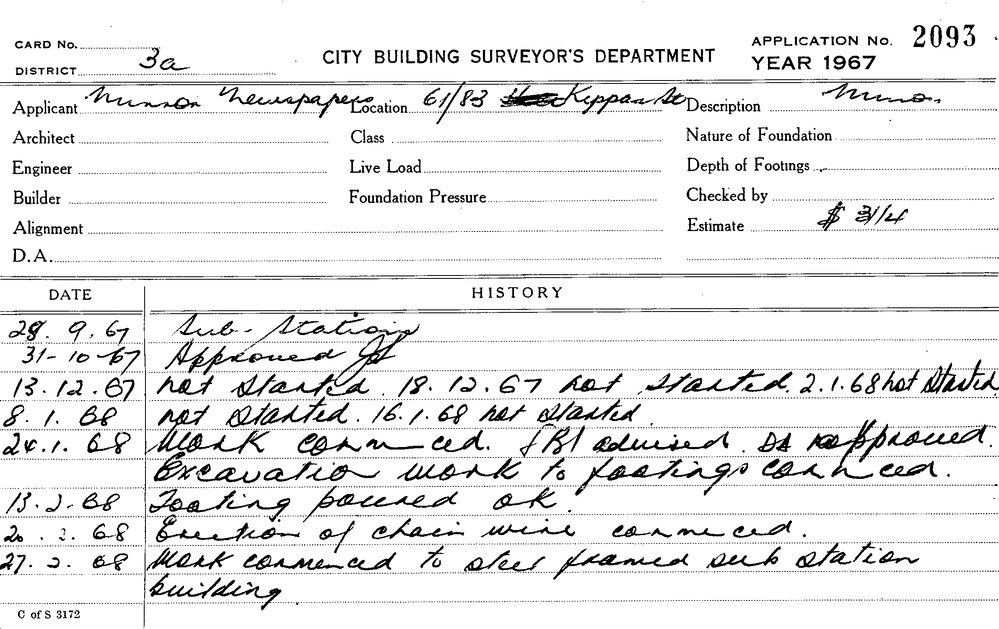 CARD No.
DISTRICT 3a
CITY BUILDING SURVEYOR'S DEPARTMENT
APPLICATION No. 2093
YEAR 1967
Applicant Newspapers Location 61/83 Kippax St Description
Architect Class Nature of Foundation
Engineer Live Load Depth of Footings
Builder Foundation Pressure Checked by
Alignment Estimate $ 314
D.A.
DATE HISTORY
28. 9. 67 Sub-Station
31-10-67 Approved
13.12.67 not started 18.12.67 not started. 2.1.68 not started
8. 1. 68 not started. 16.1.68 not started
24.1.68 Work commenced. advised approved.
Excavation work to footings commced.
13.2.68 Footing poured ok.
20.2.68 Erection of chain wire commenced.
27.2.68 Work commenced to steel framed sub station
building.
C of S 3172